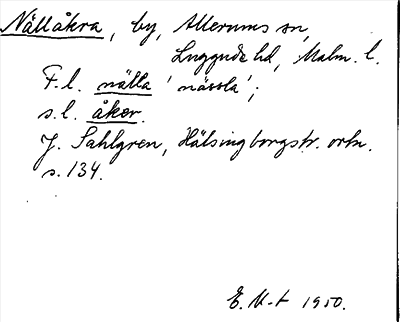 Nällåkra, by, Allerums sn,
Luggude hd, Malm. l.
F.l. nälla 'nässla';
s.l. åker.
J. Sahlgren, Hälsingborgstr. ortn.
s. 134.
E. K-t 1950.